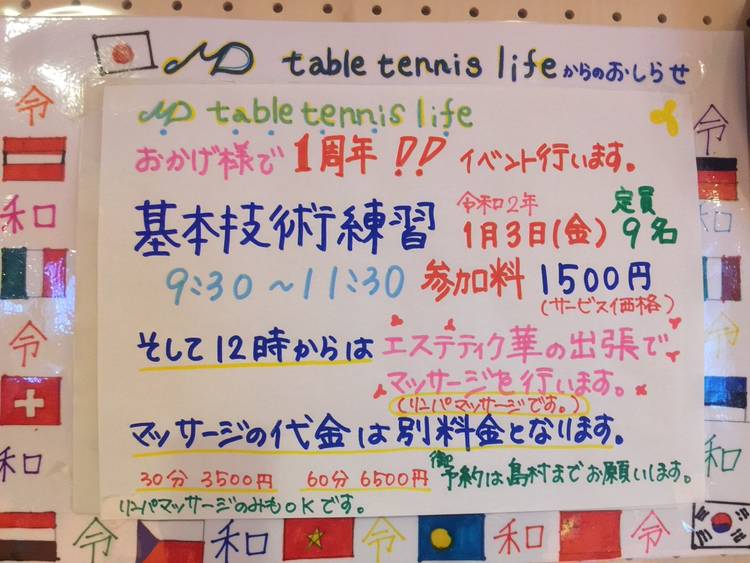 MD table tennis lifeからのおしらせ
MD table tennis life
おかげ様で1周年!! イベント行います。
基本技術練習 令和2年 1月3日(金) 定員 9名
9:30~11:30 参加料 1500円
(サービス価格)
そして12時からはエステティク華の出張で
マッサージを行います。
(リンパマッサージです。)
マッサージの代金は別料金となります。
30分 3500円 60分 6500円 御予約は島村までお願いします。
リンパマッサージのみもOKです。
令
和
令
和
令
和
令
和
令
和
令
和
令
和